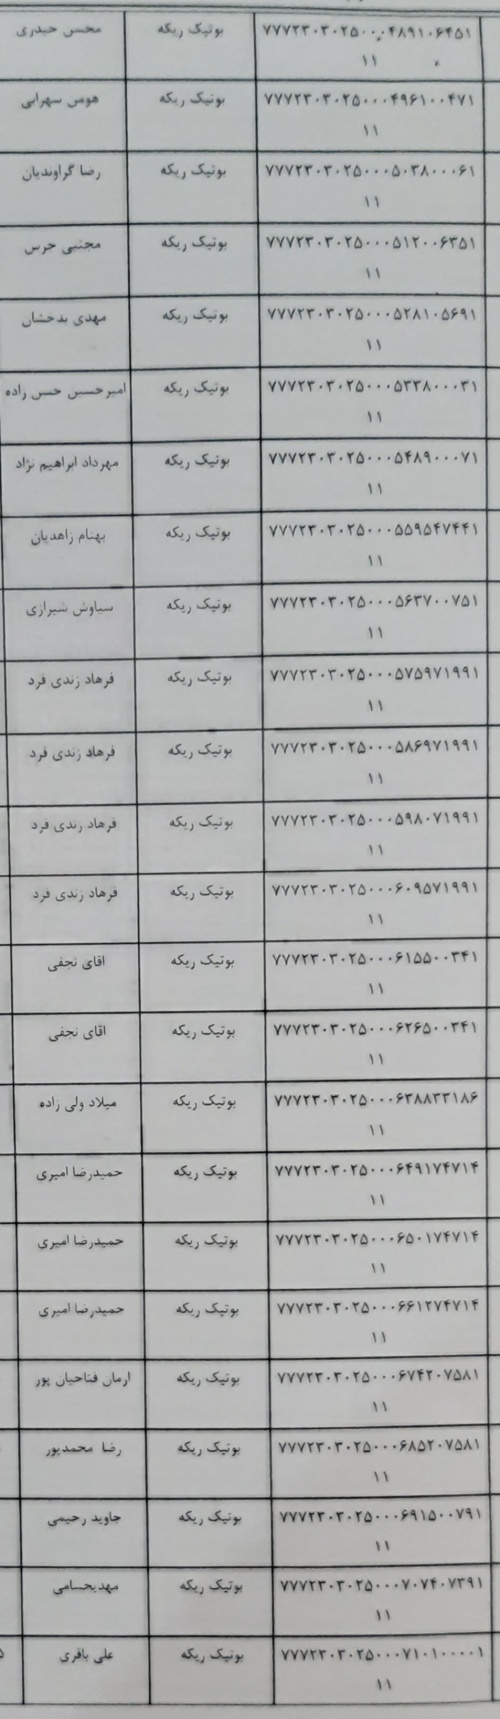 ۷۷۷۲۳۰۳۰۲۵۰۰۰۴۸۹۱۰۶۴۵۱ بوتیک ریکه محسن حیدری
۱۱
۷۷۷۲۳۰۳۰۲۵۰۰۰۴۹۶۱۰۰۴۷۱ بوتیک ریکه هومن سهرابی
۱۱
۷۷۷۲۳۰۳۰۲۵۰۰۰۵۰۳۸۰۰۰۶۱ بوتیک ریکه رضا گراوندیان
۱۱
۷۷۷۲۳۰۳۰۲۵۰۰۰۵۱۲۰۰۶۳۵۱ بوتیک ریکه مجتبی خرس
۱۱
۷۷۷۲۳۰۳۰۲۵۰۰۰۵۲۸۱۰۵۶۹۱ بوتیک ریکه مهدی بدخشان
۱۱
۷۷۷۲۳۰۳۰۲۵۰۰۰۵۳۳۸۰۰۰۳۱ بوتیک ریکه امیرحسین حسن زاده
۱۱
۷۷۷۲۳۰۳۰۲۵۰۰۰۵۴۸۹۰۰۰۷۱ بوتیک ریکه مهرداد ابراهیم نژاد
۱۱
۷۷۷۲۳۰۳۰۲۵۰۰۰۵۵۹۵۴۷۴۴۱ بوتیک ریکه بهنام زاهدیان
۱۱
۷۷۷۲۳۰۳۰۲۵۰۰۰۵۶۳۷۰۰۷۵۱ بوتیک ریکه سیاوش شیرازی
۱۱
۷۷۷۲۳۰۳۰۲۵۰۰۰۵۷۵۹۷۱۹۹۱ بوتیک ریکه فرهاد زندی فرد
۱۱
۷۷۷۲۳۰۳۰۲۵۰۰۰۵۸۶۹۷۱۹۹۱ بوتیک ریکه فرهاد زندی فرد
۱۱
۷۷۷۲۳۰۳۰۲۵۰۰۰۵۹۸۰۷۱۹۹۱ بوتیک ریکه فرهاد زندی فرد
۱۱
۷۷۷۲۳۰۳۰۲۵۰۰۰۶۰۹۵۷۱۹۹۱ بوتیک ریکه فرهاد زندی فرد
۱۱
۷۷۷۲۳۰۳۰۲۵۰۰۰۶۱۵۵۰۰۳۴۱ بوتیک ریکه اقای نجفی
۱۱
۷۷۷۲۳۰۳۰۲۵۰۰۰۶۲۶۵۰۰۳۴۱ بوتیک ریکه اقای نجفی
۱۱
۷۷۷۲۳۰۳۰۲۵۰۰۰۶۳۸۸۳۳۱۸۶ بوتیک ریکه میلاد ولی زاده
۱۱
۷۷۷۲۳۰۳۰۲۵۰۰۰۶۴۹۱۷۴۷۱۴ بوتیک ریکه حمیدرضا امیری
۱۱
۷۷۷۲۳۰۳۰۲۵۰۰۰۶۵۰۱۷۴۷۱۴ بوتیک ریکه حمیدرضا امیری
۱۱
۷۷۷۲۳۰۳۰۲۵۰۰۰۶۶۱۲۷۴۷۱۴ بوتیک ریکه حمیدرضا امیری
۱۱
۷۷۷۲۳۰۳۰۲۵۰۰۰۶۷۴۲۰۷۵۸۱ بوتیک ریکه ارمان فتاحیان پور
۱۱
۷۷۷۲۳۰۳۰۲۵۰۰۰۶۸۵۲۰۷۵۸۱ بوتیک ریکه رضا محمدپور
۱۱
۷۷۷۲۳۰۳۰۲۵۰۰۰۶۹۱۵۰۰۷۹۱ بوتیک ریکه جاوید رحیمی
۱۱
۷۷۷۲۳۰۳۰۲۵۰۰۰۷۰۷۴۰۷۳۹۱ بوتیک ریکه مهدیحسامی
۱۱
۷۷۷۲۳۰۳۰۲۵۰۰۰۷۱۰۱۰۰۰۰۱ بوتیک ریکه علی باقری
۱۱